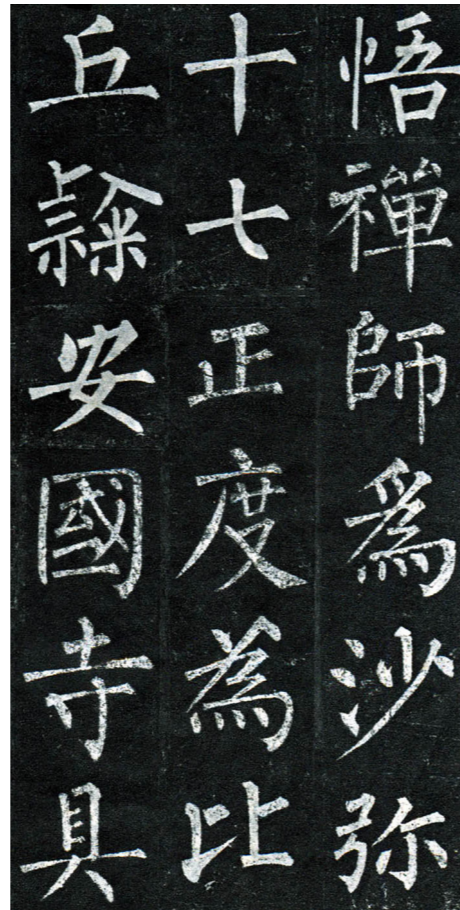 悟禪師爲沙弥
十七正度為比
丘隸安國寺具